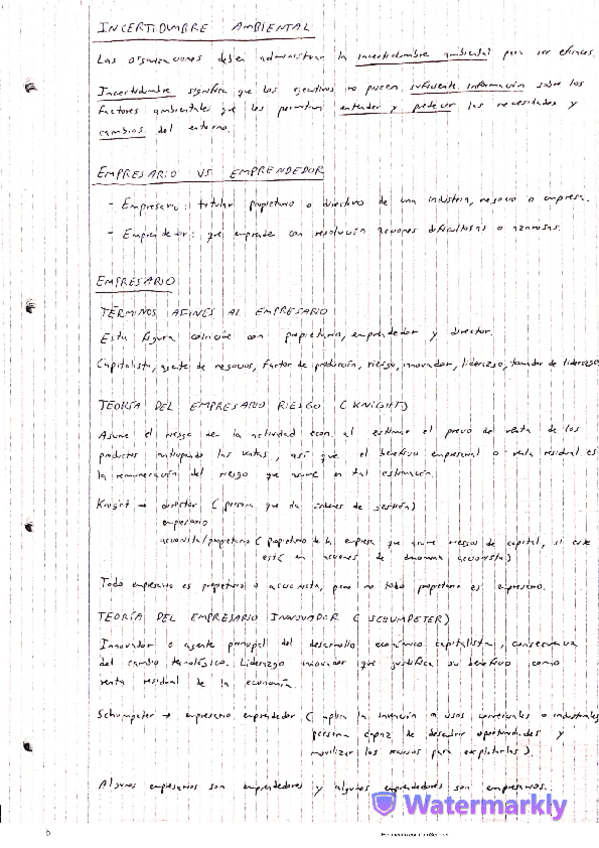 INCERTIDUMBRE AMBIENTAL
Las organizaciones deben administrar la incertidumbre ambiental para ser eficaces.
Incertidumbre significa que los ejecutivos no poseen suficiente información sobre los
factores ambientales que les permitan entender y predecir las necesidades y
cambios del entorno.
EMPRESARIO VS EMPRENDEDOR
- Empresario: titular propietario o directivo de una industria, negocio o empresa.
- Emprendedor: que emprende con resolución acciones dificultosas o azarosas.
EMPRESARIO
TÉRMINOS AFINES AL EMPRESARIO
Esta figura coincide con propietario, emprendedor y director.
Capitalista, agente de negocios, factor de producción, riesgo, innovador, liderazgo, tomador de liderazgo
TEORÍA DEL EMPRESARIO RIESGO (KNIGHT)
Asume el riesgo de la actividad econ. al estimar el precio de venta de los
productos anticipando las ventas, así que el beneficio empresarial o renta residual es
la remuneración del riesgo que asume en tal estimación.
Knight → director (persona que da órdenes de gestión)
empresario
accionista/propietario (propietario de la empresa que asume riesgos de capital, si este
está en acciones de denomina accionista)
Todo empresario es propietario o accionista, pero no todo propietario es empresario.
TEORÍA DEL EMPRESARIO INNOVADOR (SCHUMPETER)
Innovador o agente principal del desarrollo económico capitalista, consecuencia
del cambio tecnológico. Liderazgo innovador que justifica su beneficio como
renta residual de la economía.
Schumpeter → empresario emprendedor (aplica la invención a usos comerciales o industriales,
persona capaz de descubrir oportunidades y
movilizar los recursos para explotarlas).
Algunos empresarios son emprendedores y algunos emprendedores son empresarios.
Watermarkly